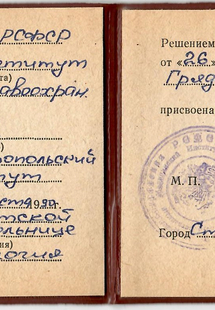 РСФСР
ститут
та)
авоохран.
опольский
тут
тской
льнице
ия)
огия
Решением
от «26.
Гряд
присвоена
М. П.
Город Ст